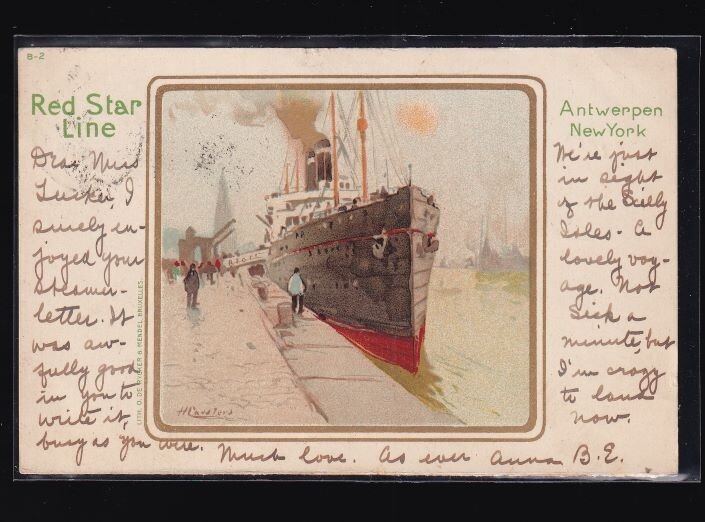 B-2
Red Star
Line
Antwerpen
New York
Dear Miss
Tucker, I
surely en-
joyed your
steamer-
letter. It
was aw-
fully good
in you to
write it,
busy as you were. Much love. As ever Anna B.E.
We're just
in sight
of the Scilly
Isles - A
lovely voy-
age. Not
sick a
minute, but
I'm crazy
to land
now.
H Cassiers
LITH. O. DE RYCKER & MENDEL, BRUXELLES.